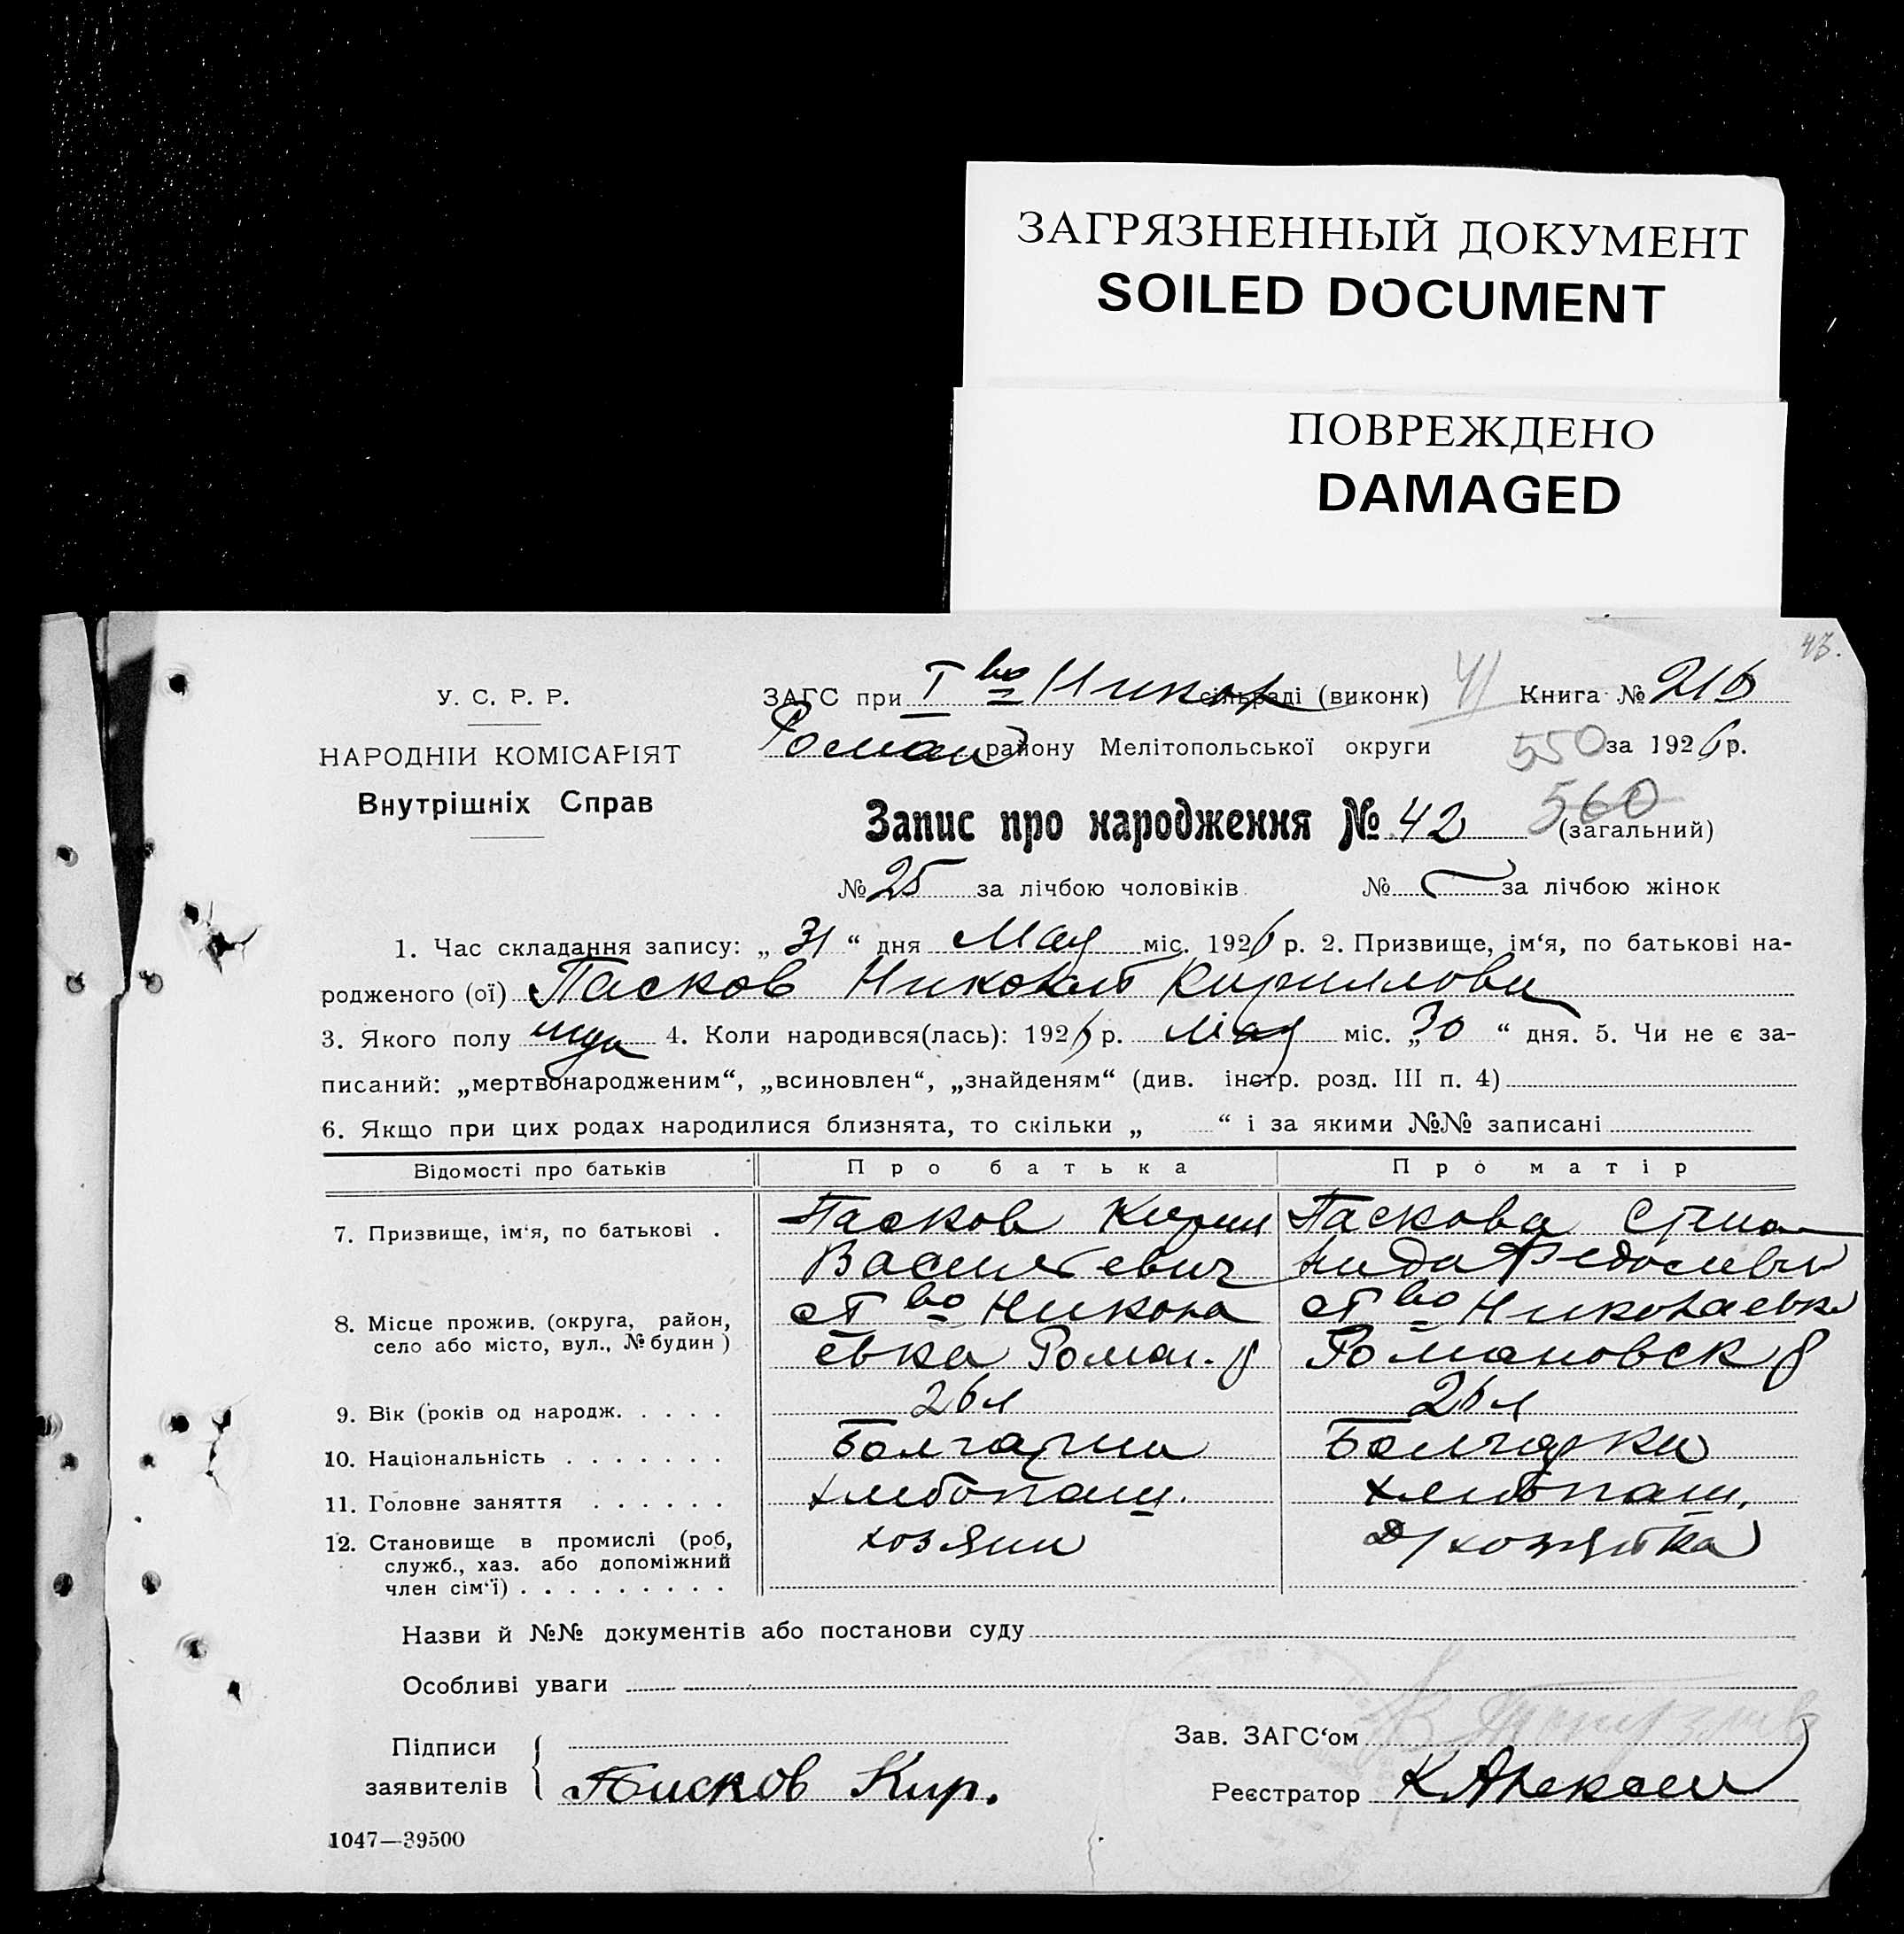 ЗАГРЯЗНЕННЫЙ ДОКУМЕНТ
SOILED DOCUMENT
ПОВРЕЖДЕНО
DAMAGED
У. С. Р. Р.
НАРОДНІЙ КОМІСАРІЯТ
Внутрішніх Справ
ЗАГС при I во Никол сільраді (виконк) Книга № 216
Роман району Мелітопольської округи 550 за 1926 р.
560
Запис про народження № 42 (загальний)
№ 25 за лічбою чоловіків № за лічбою жінок
1. Час складання запису: „ 31 “ дня Мая міс. 1926 р. 2. Призвище, ім‘я, по батькові на-
родженого (ої) Пасков Николай Кириллови
3. Якого полу муж 4. Коли народився(лась): 1926 р. Мая міс. „ 30 “ дня. 5. Чи не є за-
писаний: „мертвонародженим“, „всиновлен“, „знайденям“ (див. інстр. розд. III п. 4)
6. Якщо при цих родах народилися близнята, то скільки „ “ і за якими №№ записані
Відомості про батьків Про батька Про матір
7. Призвище, ім‘я, по батькові . Пасков Кирил Паскова Степа
Василевич нида Федосиевн
8. Місце прожив. (округа, район, село або місто, вул., № будин) во Никола во Николаевк
евка Роман. р Романовск р
9. Вік (років од народж. . . . . 26 л 26 л
10. Національність . . . . . . . Болгарин Болгарка
11. Головне заняття . . . . . . хлибопаш. хлибопаш.
12. Становище в промислі (роб, хозяин д/хозяйка
служб., хаз. або допоміжний
член сім‘ї) . . . . . . . . .
Назви й №№ документів або постанови суду
Особливі уваги
Підписи Зав. ЗАГС‘ом
заявителів Пасков Кир. Реєстратор К Алексеев
1047—39500